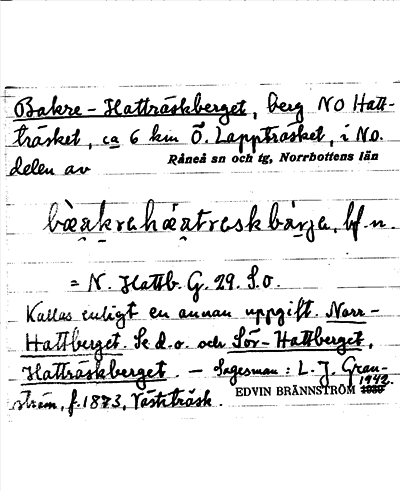 Bakre-Hatträskberget, berg NO Hatt-
träsket, ca 6 km Ö. Lappträsket, i No.
delen av Råneå sn och tg, Norrbottens län
bf. n.
= N. Hattb. G. 29. S.o.
Kallas enligt en annan uppgift. Norr-
Hattberget. Se d.o. och Sör-Hattberget,
Hatträskberget. – Sagesman: L. J. Gran-
ström, f. 1873, Västiträsk. EDVIN BRÄNNSTRÖM 1942.